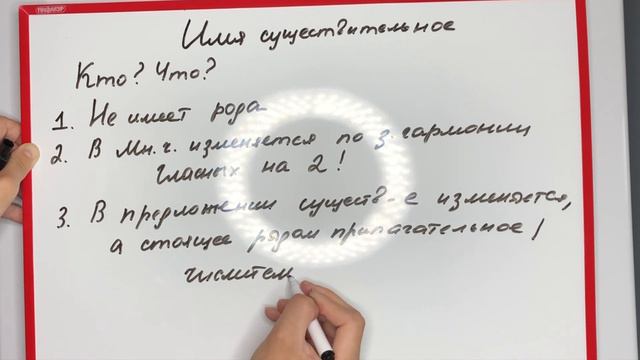 Имя существительное
Кто? Что?
1. Не имеет рода
2. В мн.ч. изменяется по з. гармонии
гласных на 2!
3. В предложении существ-е изменяется,
а стоящее рядом прилагательное /
числител